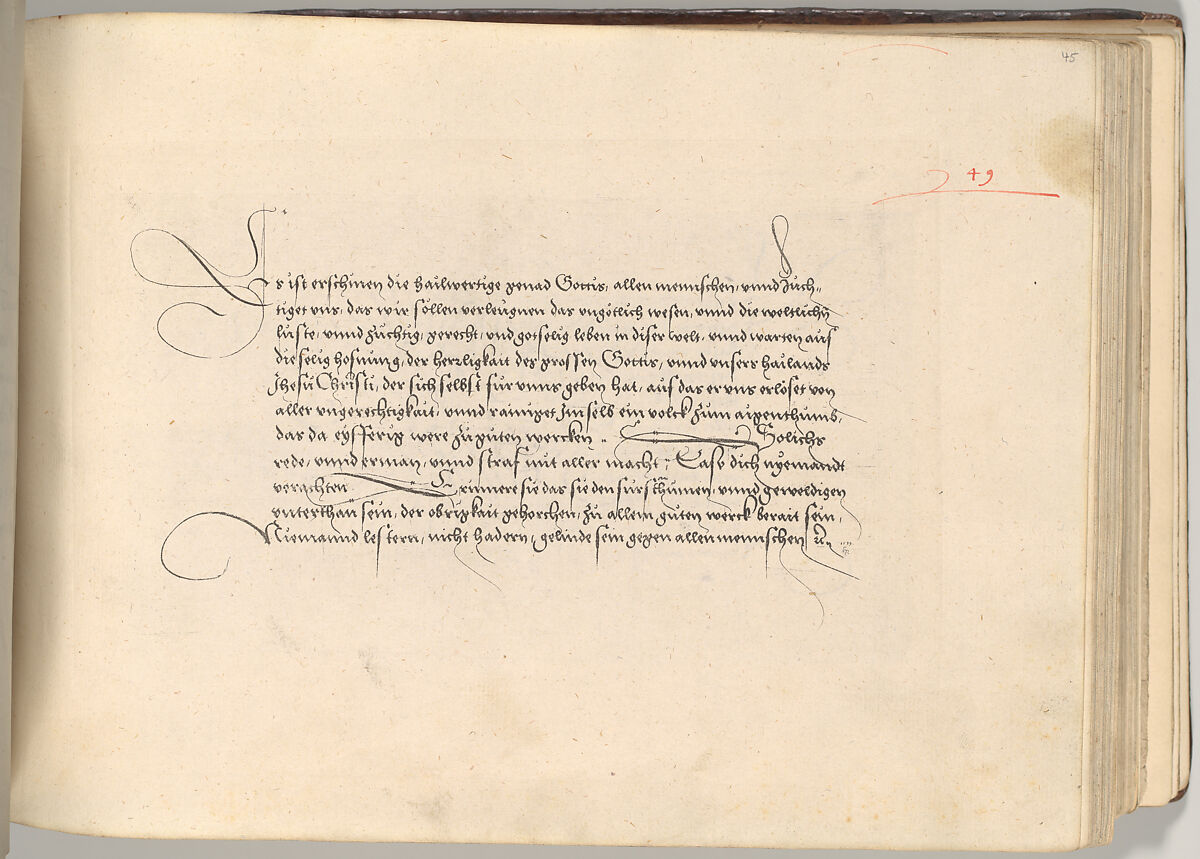 45
49
Es ist erschinen die hailwertige genad Gottis, allen mennschen, vnnd zuch-
tiget vns, das wir söllen verleugnen das vngötlich wesen, vnnd die weltlichñ
luste, vnnd züchtig, gerecht, vnd gotselig leben in diser welt, vnnd warten auf
die selig hofnung, der herrligkait des grossen Gottis, vnnd vnsers hailands
Jhesu Christi, der sich selbst fur vnns geben hat, auf das er vns erlöset von
aller vngerechtigkait, vnnd rainiget jm selbs ein volck zum aigenthumb,
das da eysserig were zu guten wercken .. Solichs
rede, vnnd erman, vnnd straf mit aller macht, Lass dich nyemandt
verachten Erinnere sie das sie den fursthumen, vnnd geweldigen
vnterthan sein, der obrigkait gehorchen, zu allem guten werck berait sein,
Niemannd lestern, nicht hadern, gelinde sein gegen allen mennschen